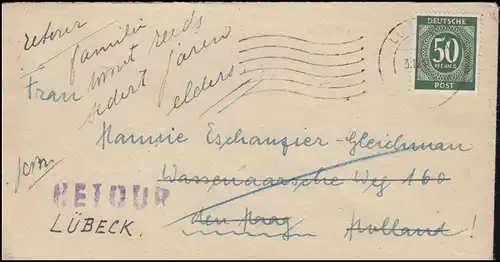 retour
familie
woont reeds
sedert jaren
elders
DEUTSCHE
50
PFENNIG
POST
Frau
Hannie Eschauzier-Gleichman
Wassenaarsche Weg 160
den Haag Holland!
RETOUR
LÜBECK.